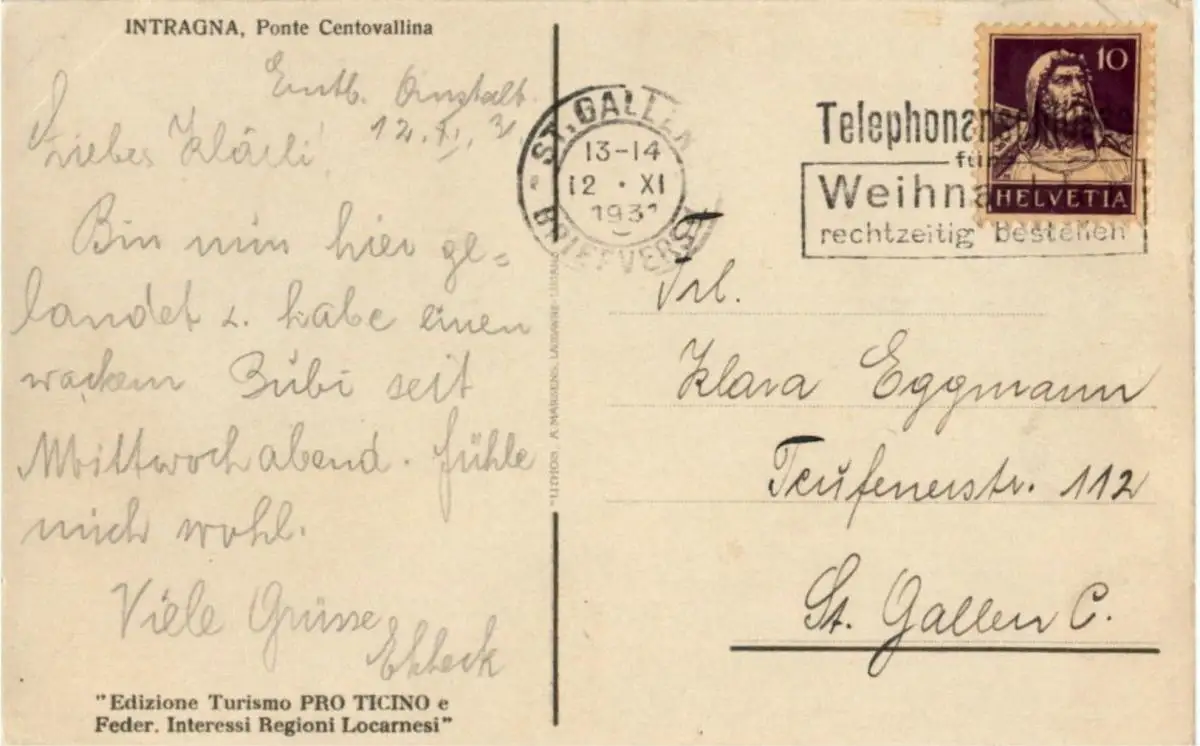 INTRAGNA, Ponte Centovallina
Entb. Anstalt.
12. XI. 31
Liebes Kläsli!
Bin nun hier ge=
landet u. habe einen
wackern Bübi seit
Mittwochabend. Fühle
mich wohl.
Viele Grüsse
"Edizione Turismo PRO TICINO e
Feder. Interessi Regioni Locarnesi"
ST. GALLEN
13-14
12 · XI
1931
BRIEFVERS
Telephonan
fürs
Weihna
rechtzeitig bestellen
10
HELVETIA
Frl.
Klara Eggmann
Teufenerstr. 112
St. Gallen C.